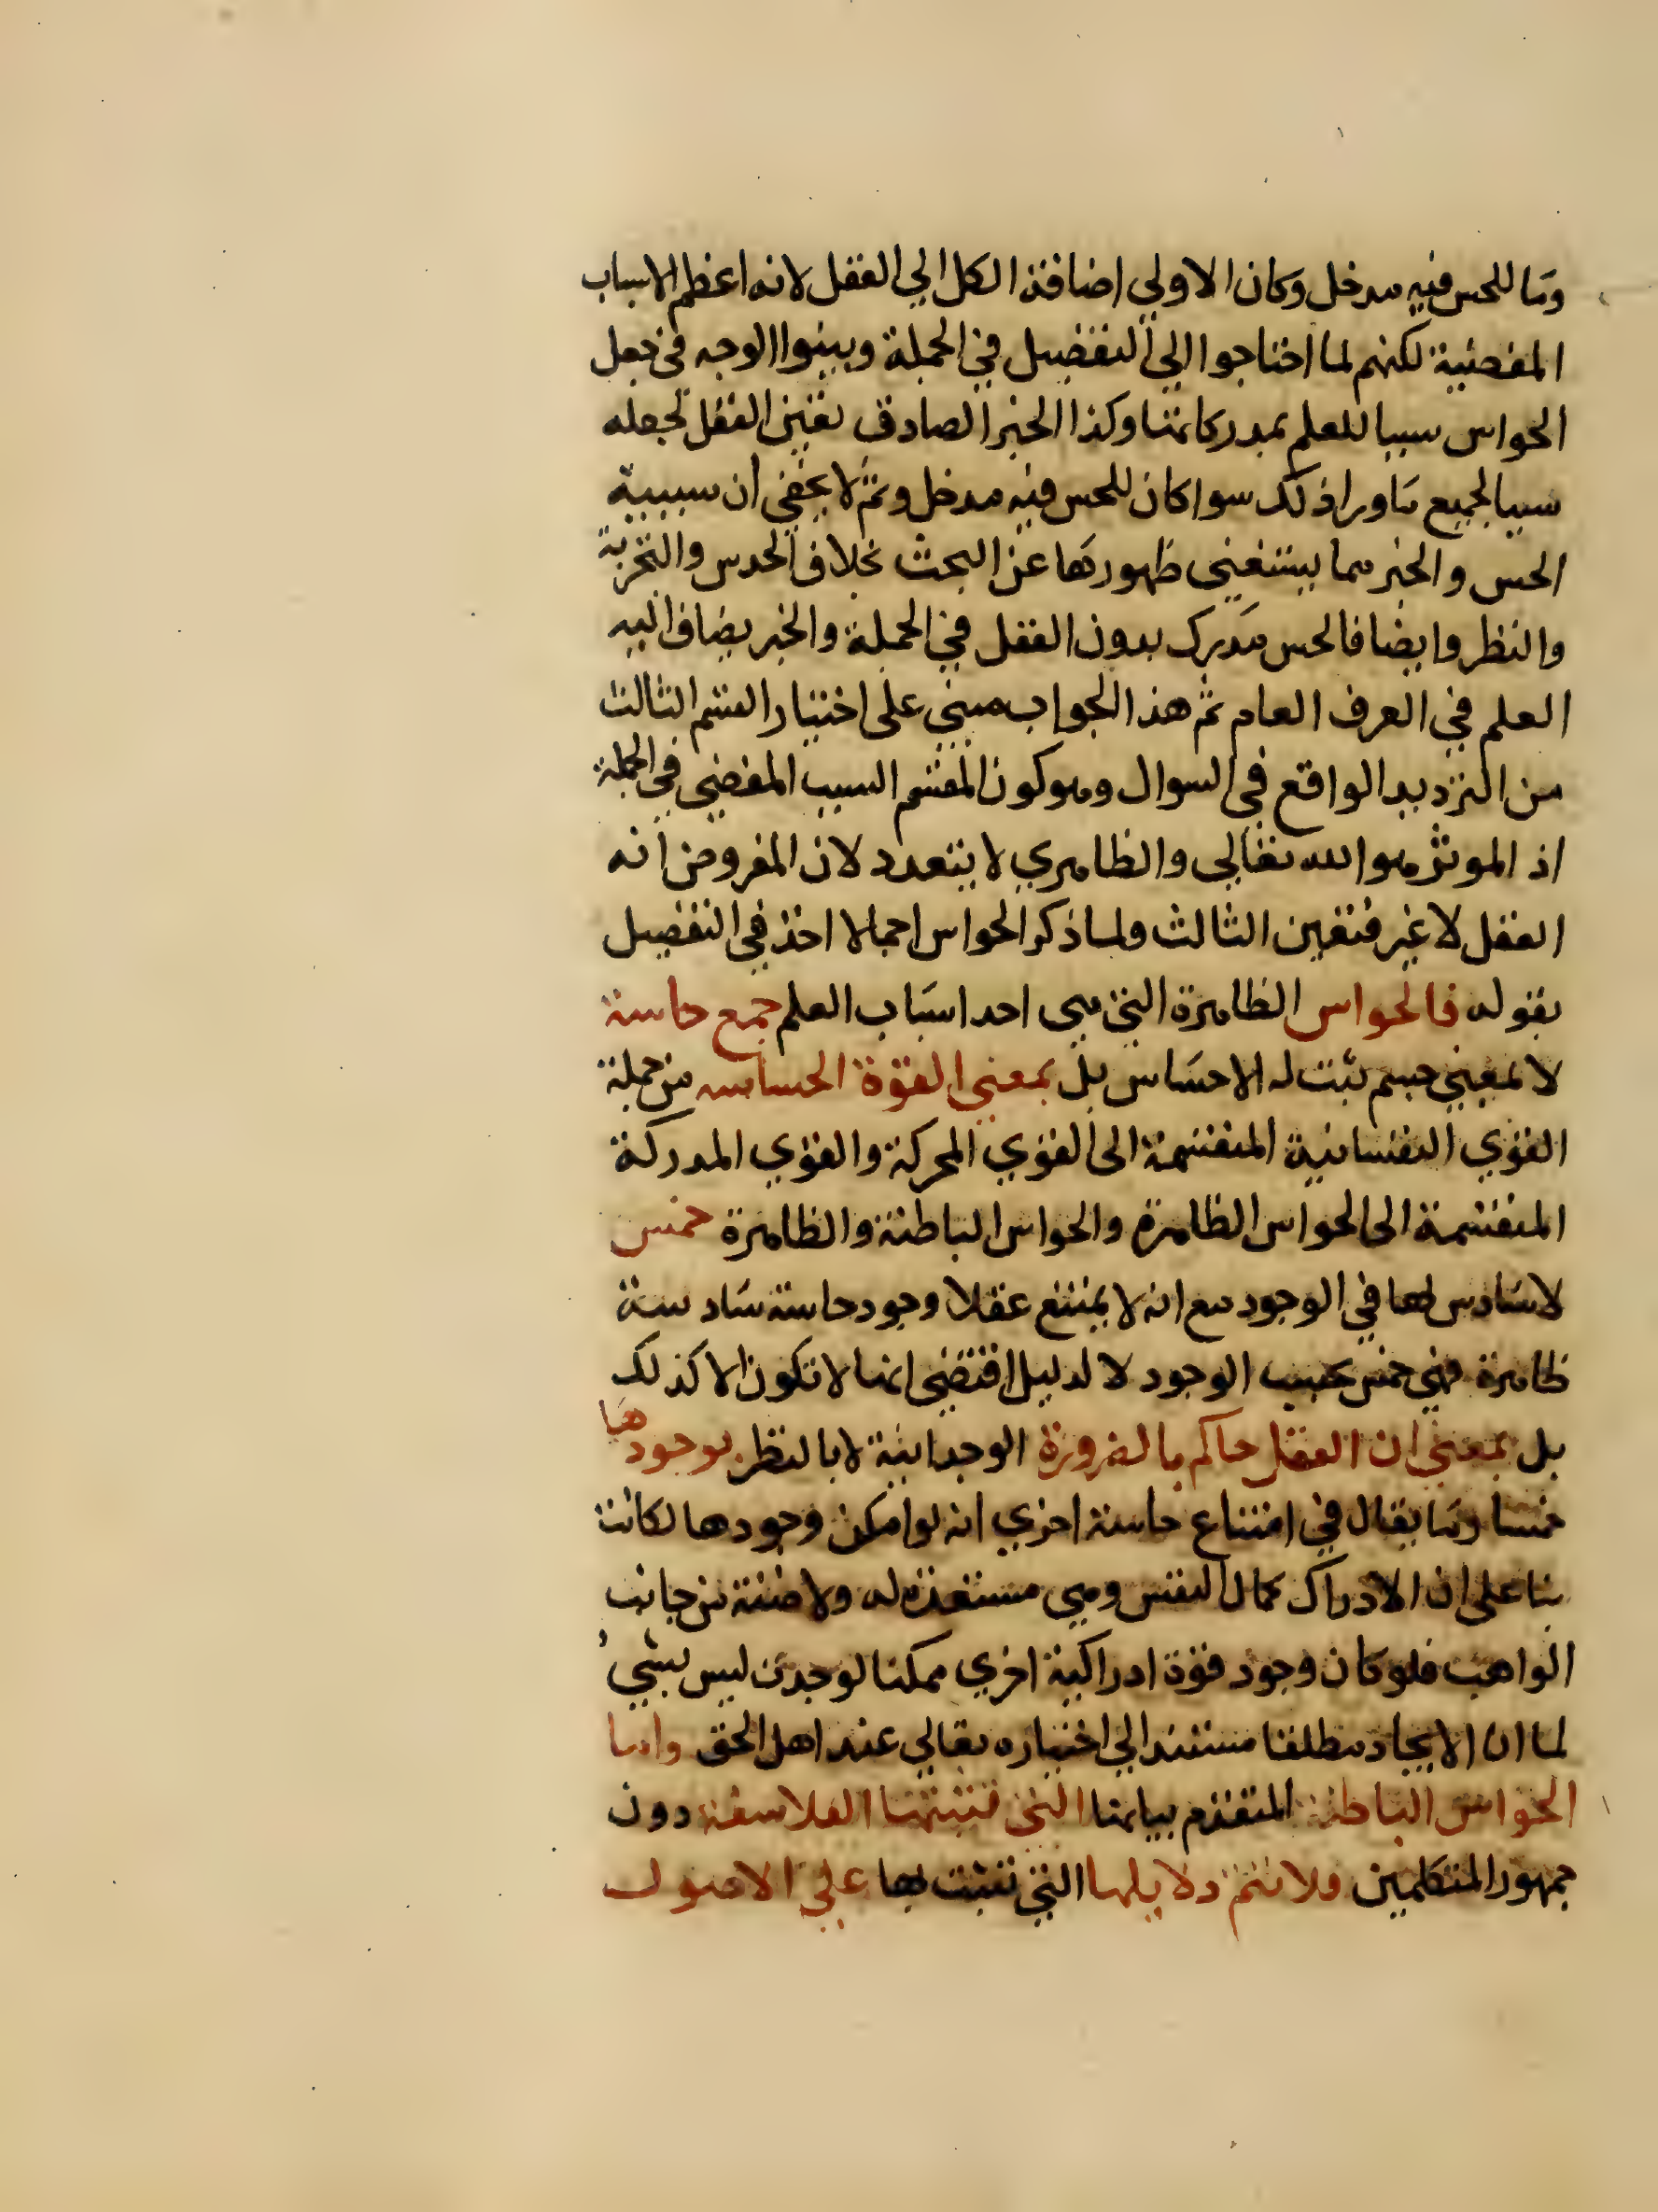 وما للحس فيه مدخل وكان الاولي اضافة الكل الي العقل لانه اعظم الاسباب
المفضية لكنهم لما احتاجوا الي التفضيل في الجملة وبينوا الوجه في جعل
الحواس سببا للعلم بمدركاتها وكذا الخبر الصادق تعين العقل لجعله
سببا لجميع ما ورا ذلك سوا كان للحس فيه مدخل وثم لا يخفي ان سببية
الحس والخبر مما يستغني ظهورها عن البحث بخلاف الحدس والتجربة
والنظر وايضا فالحس مدرك بدون العقل في الجملة والخبر يضاف اليه
العلم في العرف العام ثم هذا الجواب مبني علي اختيار القسم الثالث
من الترديد الواقع في السوال وهو كون المقسم السبب المفضي في الجملة
اذ الموثر هو الله تعالي والظاهري لا يتعدد لان المفروض انه
العقل لا غير فتعين الثالث ولما ذكر الحواس اجمالا اخذ في التفصيل
بقوله فالحواس الظاهرة التي هي احد اسباب العلم جمع حاسة
لا بمعني جسم ثبت له الاحساس بل بمعني القوة الحساسه من جملة
القوي النفسانية المنقسمة الى القوي المحركة والقوي المدركة
المنقسمة الى الحواس الظاهرة والحواس الباطنة والظاهرة خمس
لا سادس لها في الوجود مع انه لا يمتنع عقلا وجود حاسة سادسة
ظاهرة فهي خمس بحسب الوجود لا لدليل اقتضي انها لا تكون الا كذلك
بل بمعني ان العقل حاكم بالضرورة الوجدانية لا بالنظر بوجودها
خمسا وما يقال في امتناع حاسة اخري انه لو امكن وجودها لكانت
بنا على ان الادراك كمال النفس وهي مستعدة له ولا ضنة من جانب
الواهب فلو كان وجود قوة ادراكية اخري ممكنا لوجدت ليس بشيء
لما ان الايجاد مطلقا مستند الي اختياره تعالي عند اهل الحق واما
الحواس الباطنة المتقدم بيانها التي تثبتها الفلاسفة دون
جمهور المتكلمين فلا تتم دلايلها التي تثبت بها علي الاصول